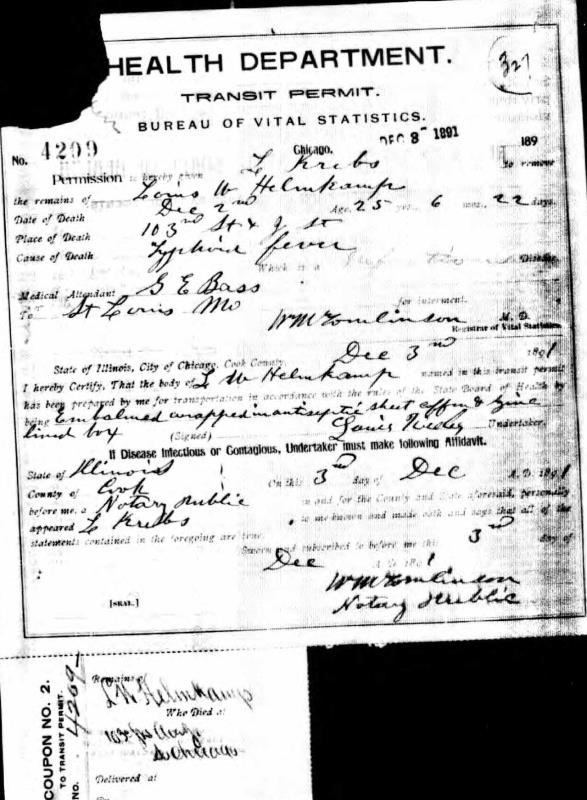 HEALTH DEPARTMENT.
327
TRANSIT PERMIT.
BUREAU OF VITAL STATISTICS.
No. 4209 Chicago, DEC 3 1891 189
Permission is hereby given L Krebs to remove
the remains of Louis W Helmkamp
Date of Death Dec 2nd Age, 25 yrs. 6 mos. 22 days.
Place of Death 103rd St & J St
Cause of Death Typhoid fever
Which is a Disease.
Medical Attendant G E Bass
To St Louis Mo for interment.
Wm Tomlinson M. D.
Registrar of Vital Statistics
State of Illinois, City of Chicago, Cook County, Dec 3rd 1891
I hereby Certify, That the body of L W Helmkamp named in this transit permit
has been prepared by me for transportation in accordance with the rules of the State Board of Health by
being Embalmed wrapped in antiseptic sheet coffin & Zinc
lined box (Signed) Louis Undertaker.
If Disease Infectious or Contagious, Undertaker must make following Affidavit.
State of Illinois On this 3rd day of Dec A. D. 1891
County of Cook in and for the County and State aforesaid, personally
before me, a Notary Public
appeared L Krebs to me known and made oath and says that all of the
statements contained in the foregoing are true.
Sworn and subscribed to before me this 3rd day of
Dec A. D. 1891
Wm Tomlinson
Notary Public
[SEAL.]
COUPON NO. 2.
TO TRANSIT PERMIT.
NO. 4209
Remains of
L W Helmkamp
Who Died at
103rd
Chicago
Delivered at